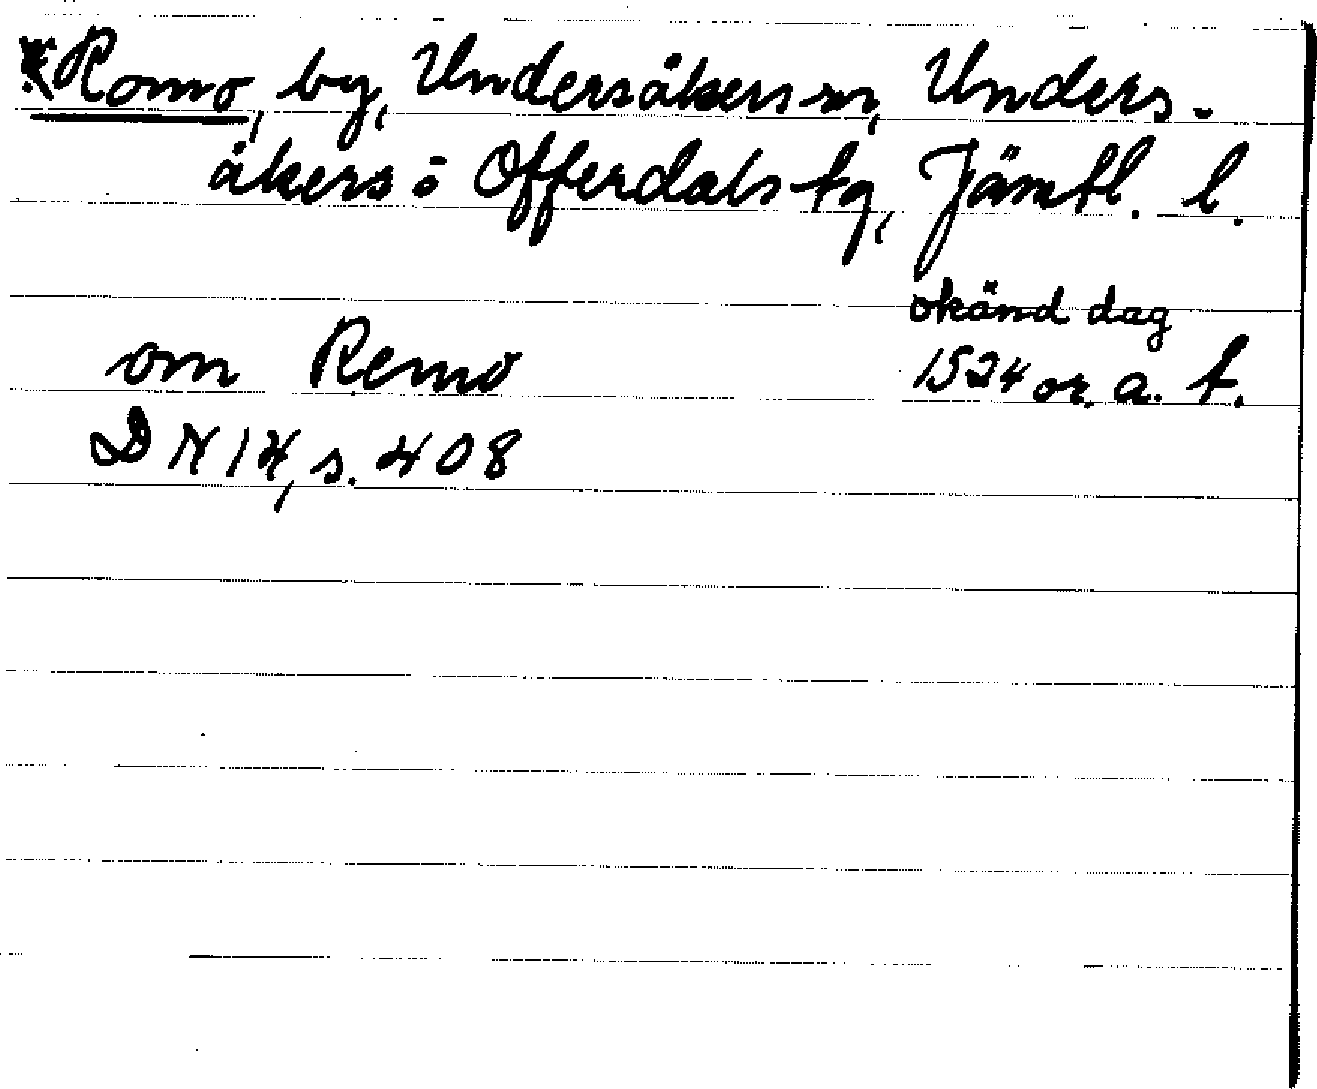 Romo, by, Undersåkers sn, Unders-
åkers o Offerdals tg, Jämtl. l.
okänd dag
om Remo 1524 or. a. t.
DN 14, s. 408